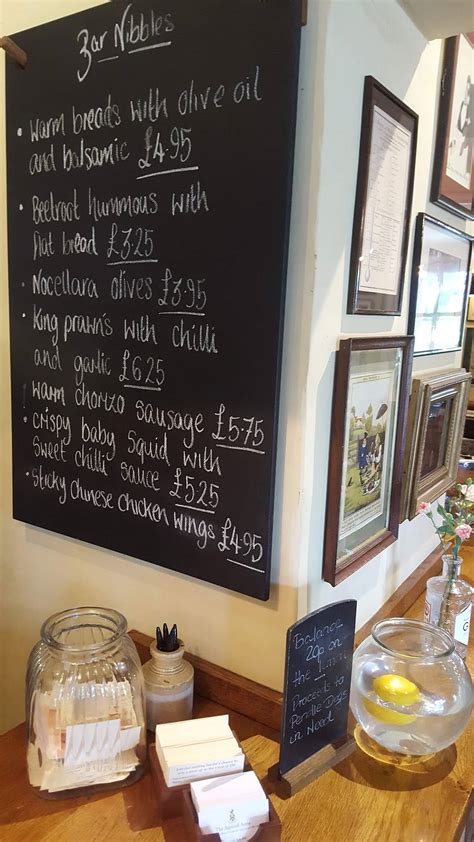 Bar Nibbles
• Warm breads with olive oil
and balsamic £4.95
• Beetroot hummous with
flat bread £3.25
• Nocellara olives £3.95
• King prawn's with chilli
and garlic £6.25
• warm chorizo sausage £5.75
• crispy baby squid with
sweet chilli sauce £5.25
• Sticky chinese chicken wings £4.95
Balance
20p on
the Lemon
Proceeds to
Dogs
in Need
G